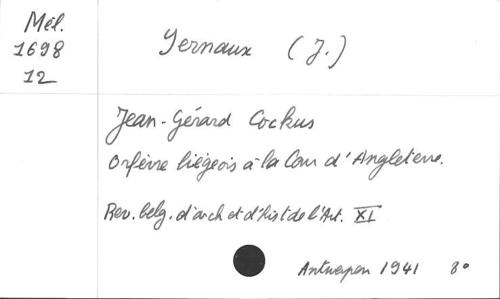 Mél.
1698
12
Yernaux (J.)
Jean-Gérard Cockus
Orfèvre liégeois à la Cour d'Angleterre.
Rev. belg. d'arch et d'hist de l'Art. XI
Antwerpen 1941 8°